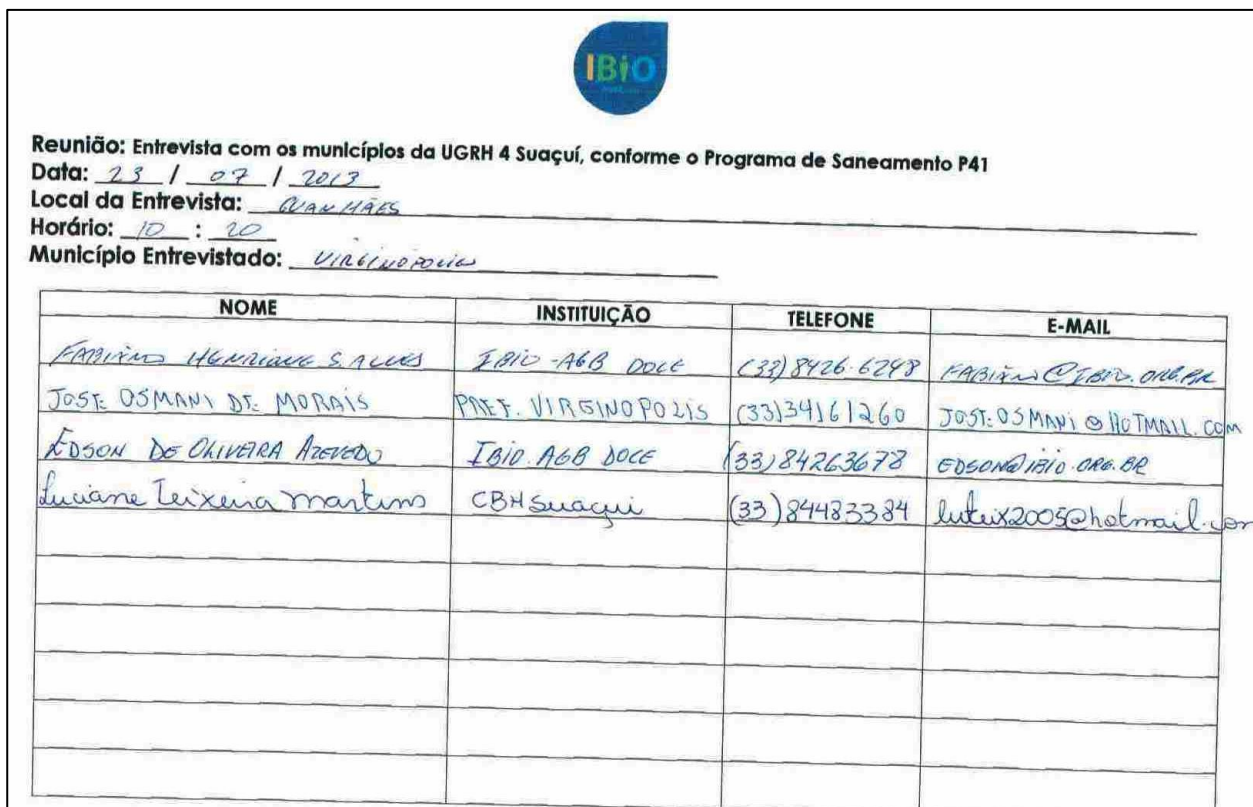 IBiO
Reunião: Entrevista com os municípios da UGRH 4 Suaçuí, conforme o Programa de Saneamento P41
Data: 23 / 07 / 2013
Local da Entrevista: GUANHÃES
Horário: 10 : 20
Município Entrevistado: VIRGINOPOLIS
NOME INSTITUIÇÃO TELEFONE E-MAIL
FABIANO HENRIQUE S. ALVES IBIO-AGB DOCE (33) 8426-6298 FABIANO@IBIO.ORG.BR
JOSE OSMANI DE MORAIS PREF. VIRGINOPOLIS (33)34161260 JOSE.OSMANI@HOTMAIL.COM
EDSON DE OLIVEIRA AZEVEDO IBIO.AGB DOCE (33)84263678 EDSON@IBIO.ORG.BR
Luciane Teixeira Martins CBH Suaçui (33)84483384 luteix2005@hotmail.com